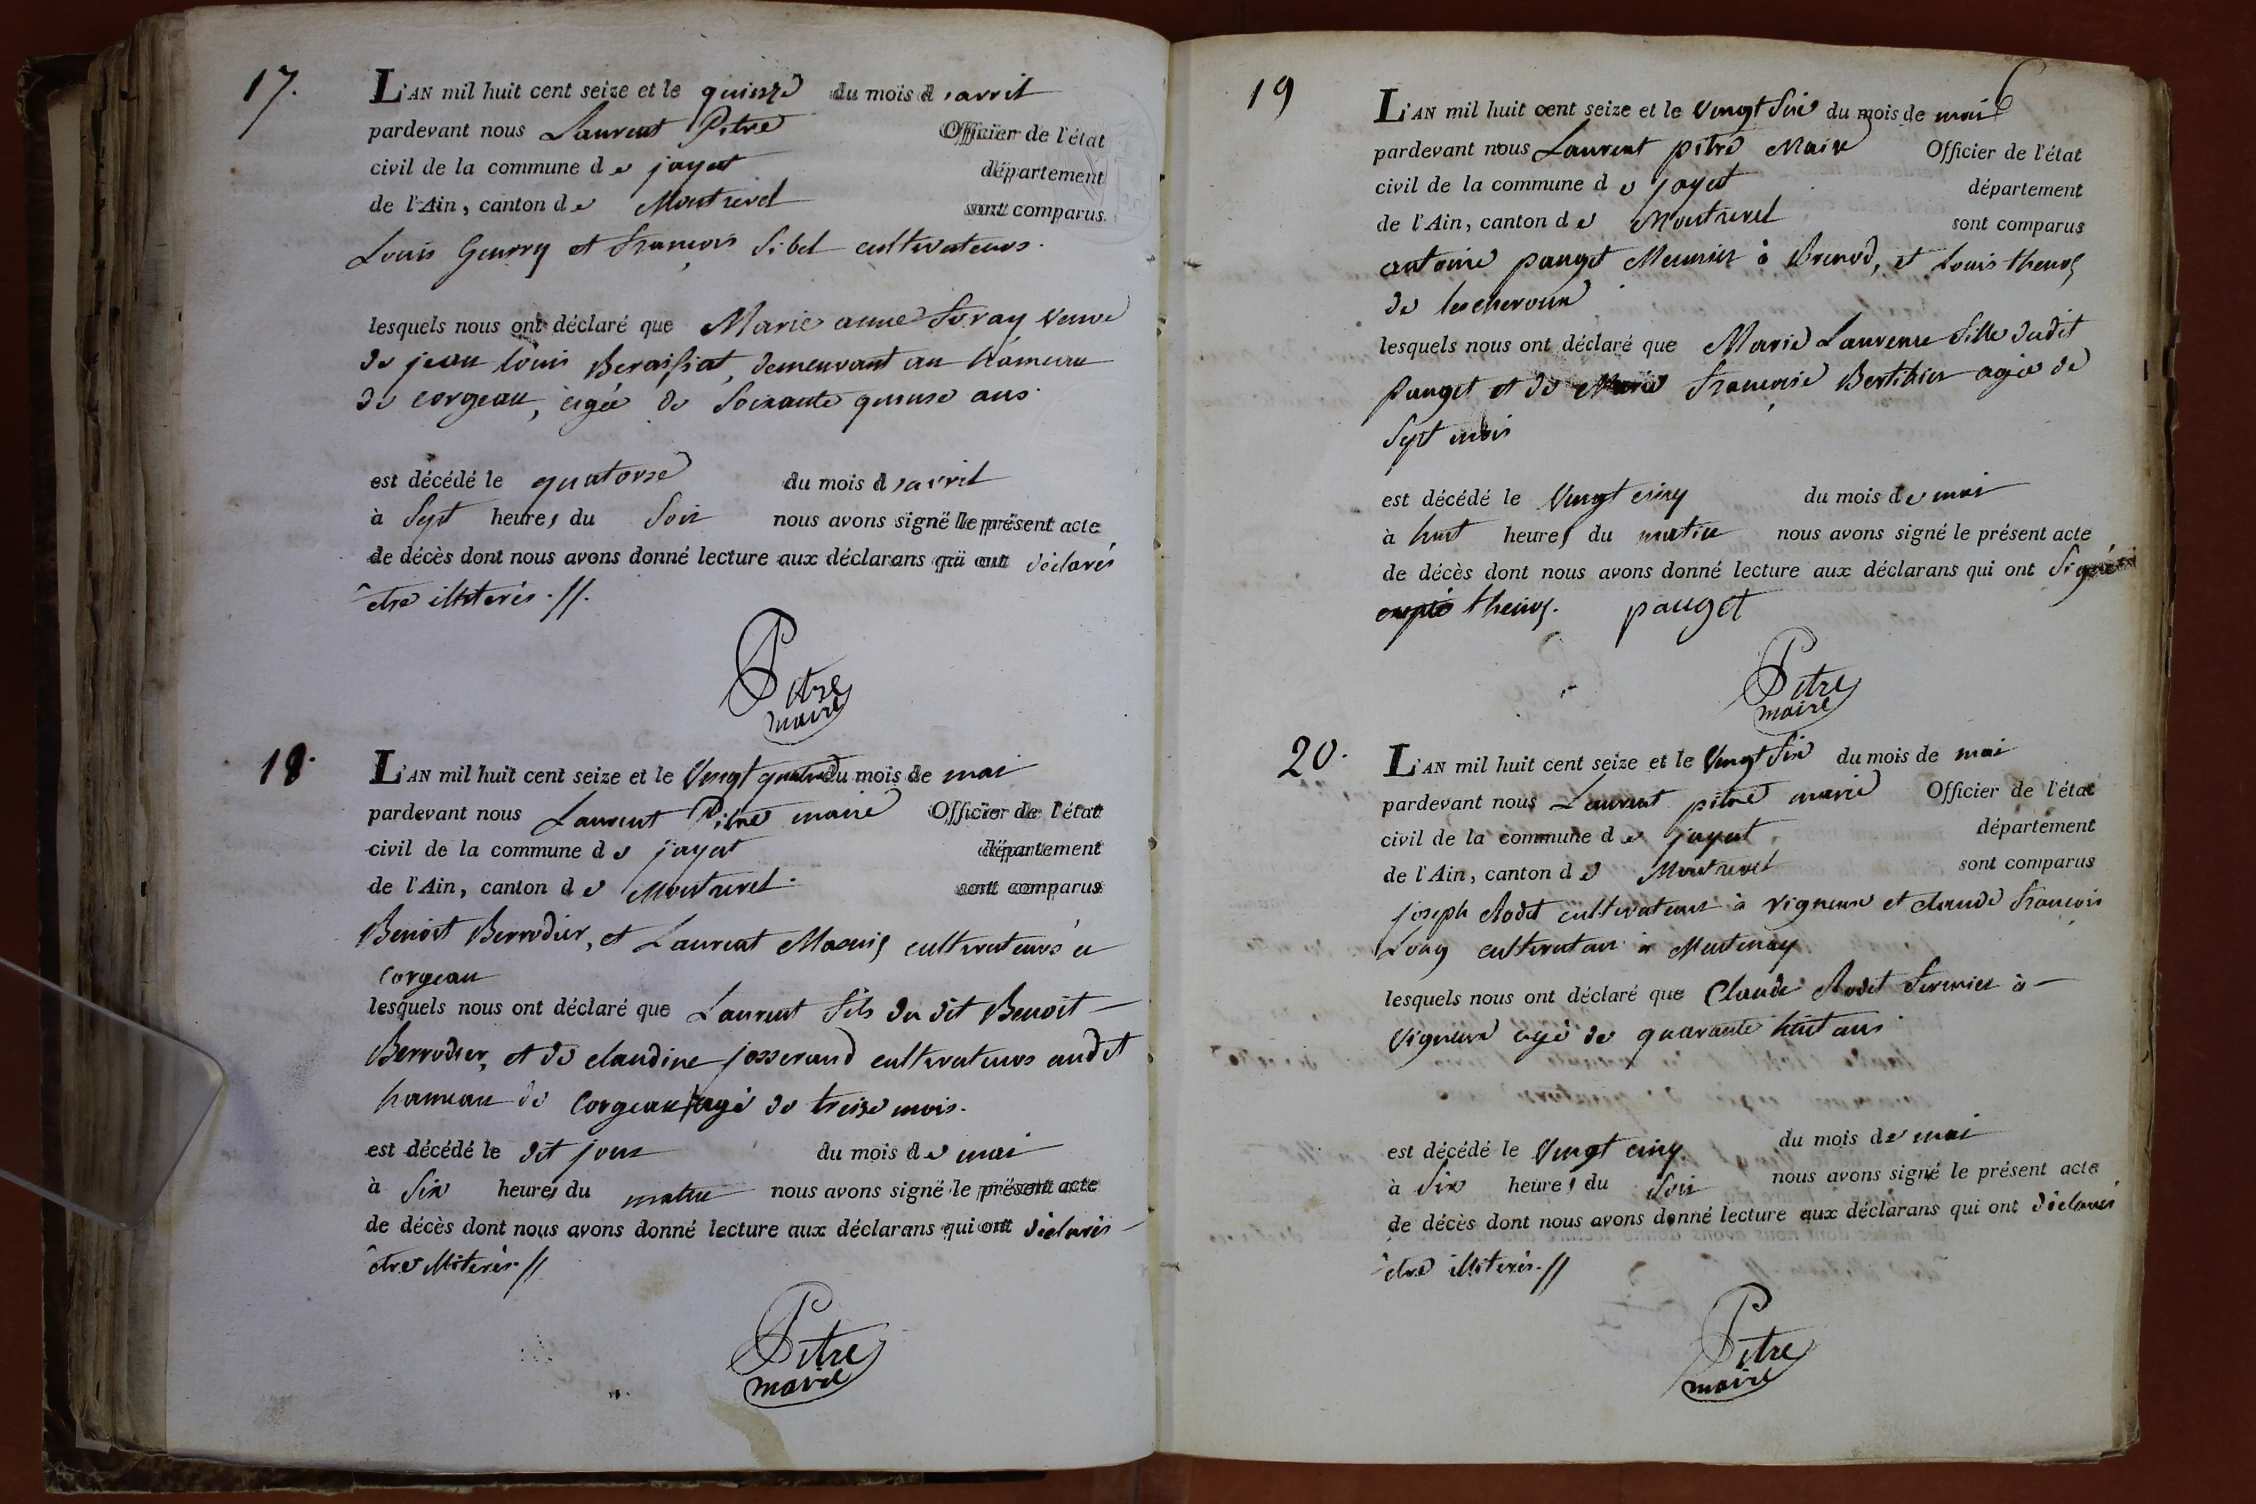 17.
L'AN mil huit cent seize et le quinze du mois d'avril
pardevant nous Laurent Pitre Officier de l'état
civil de la commune de jayat département
de l'Ain, canton de Montrevel sont comparus
Louis Guerry et françois Sibel cultivateurs.
lesquels nous ont déclaré que Marie anne veuve
de jean louis Beraissiat, demeurant au hameau
de corgeau, agée de Soixante quinse ans
est décédé le quatorse du mois d'avril
à Sept heures du Soir nous avons signé le présent acte
de décès dont nous avons donné lecture aux déclarans qui ont déclarés
être illiterés.//.
Pitre
maire
18.
L'AN mil huit cent seize et le Vingt quatre du mois de mai
pardevant nous Laurent Pitre maire Officier de l'état
civil de la commune de jayat département
de l'Ain, canton de Montrevel. sont comparus
Benoit Berrodier, et Laurent cultivateurs à
Corgeau
lesquels nous ont déclaré que Laurent fils du dit Benoit
Berrodier, et de claudine josserand cultivateurs audit
hameau de Corgeau agé de treize mois.
est décédé le dit jour du mois de mai
à Six heures du matin nous avons signé le présent acte
de décès dont nous avons donné lecture aux déclarans qui ont déclarés
être illiterés.//
Pitre
maire
19
6
L'AN mil huit cent seize et le Vingt Six du mois de mai
pardevant nous Laurent pitre Maire Officier de l'état
civil de la commune de jayat département
de l'Ain, canton de Montrevel sont comparus
antoine pauget Meunier à et Louis
de lescheroux
lesquels nous ont déclaré que Marie Laurence fille dudit
Pauget et de Marie françoise agée de
Sept mois
est décédé le Vingt cinq du mois de mai
à huit heures du matin nous avons signé le présent acte
de décès dont nous avons donné lecture aux déclarans qui ont Signé
pauget
Pitre
maire
20.
L'AN mil huit cent seize et le Vingt Six du mois de mai
pardevant nous Laurent pitre maire Officier de l'état
civil de la commune de jayat département
de l'Ain, canton de Montrevel sont comparus
joseph Rodet cultivateur à Vigneux et claude francois
Long cultivateur à
lesquels nous ont déclaré que Claude Rodet fermier à
Vigneux agé de quarante huit ans
est décédé le Vingt cinq du mois de mai
à Six heures du Soir nous avons signé le présent acte
de décès dont nous avons donné lecture aux déclarans qui ont déclarés
être illiterés.//
Pitre
maire